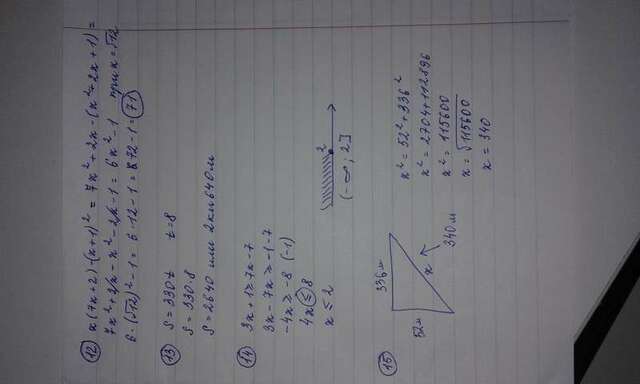 12 x(7x+2)-(x+1)² = 7x²+2x-(x²+2x+1)=
7x²+2x-x²-2x-1= 6x²-1 при x=√12
6·(√12)²-1= 6·12-1= 72-1=71
13 S=330t t=8
S=330·8
S=2640 или 2км640м
14 3x+1≥7x-7
3x-7x≥-1-7
-4x≥-8 (-1)
4x≤8
x≤2
2
(-∞; 2]
15 336м
52м
x
340м
x²=52²+336²
x²=2704+112896
x²=115600
x=√115600
x=340